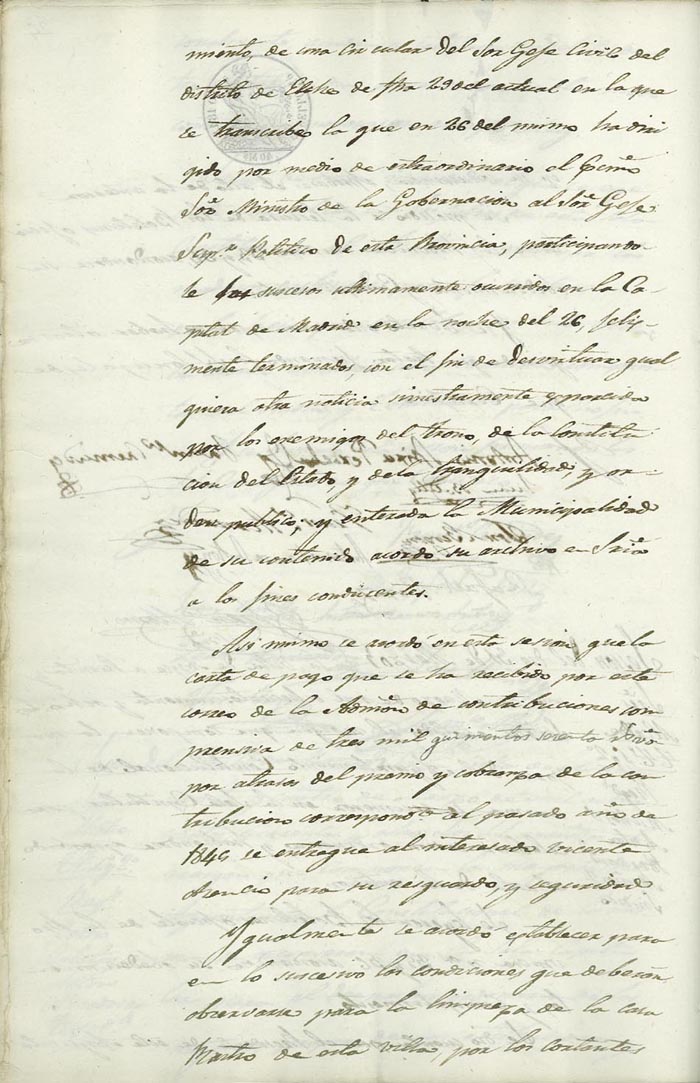 miento, de una circular del Sor Gefe Civil del
distrito de Elche de fha 29 del actual en la que
se transcribe la que en 26 del mimo ha diri
gido por medio de extraordinario el Ecmo
Sor Ministro de la Gobernacion al Sor Gefe
Supr Politico de esta Provincia, participando
le los sucesos ultimamente ocurridos en la Ca-
pital de Madrid en la noche del 26, feliz-
mente terminados, con el fin de desvirtuar qual
quiera otra noticia sinestramente esparcida
por los enemigos del trono, de la Constitu
cion del Estado, y de la tranquilidad, y or-
den publico, y enterada la Municipalidad
de su contenido acordo su archivo en Sria
a los fines conducentes.
Asi mimo se acordó en esta sesion que la
carta de pago que se ha recibido por este
correo de la Admon de contribuciones com
prensiva de tres mil quinientos sesenta
por atrasos del premio y cobranza de la con
tribucion correspondte al pasado año de
184 se entregue al interesado Vicente
Asencio para su resguardo, y seguridad
Ygualmente se acordó establecer para
en lo sucesivo las condiciones que deberan
observarse para la limpieza de la casa
Rastro de esta villa, por los cortantes